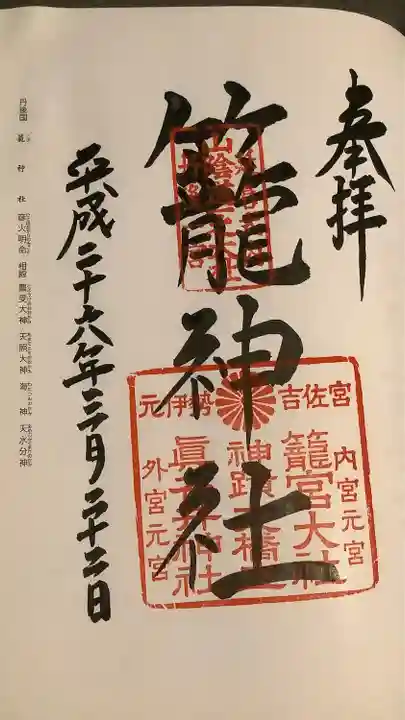 奉拝
籠神社
平成二十六年三月二十二日
元伊勢 吉佐宮
内宮元宮
籠宮大社
神蹟天橋立
眞名井神社
外宮元宮
丹後国 籠神社 彦火明命 相殿 豊受大神 天照大神 海神 天水分神